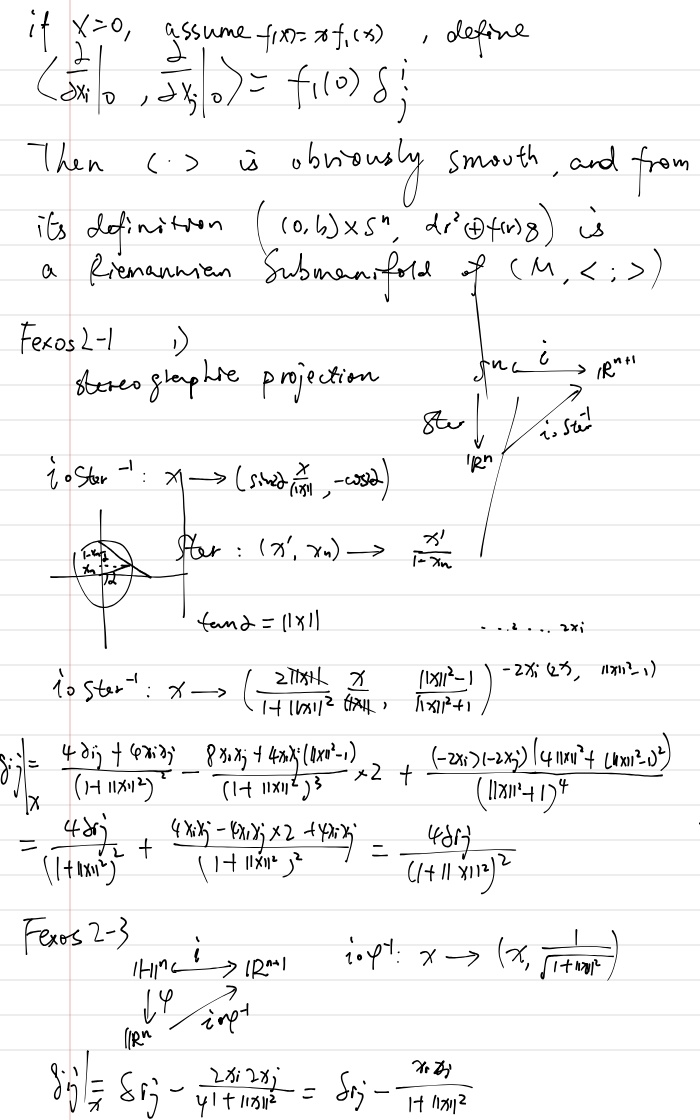 if x=0, assume f(x)=x f₁(x), define
⟨∂/∂xᵢ|₀, ∂/∂xⱼ|₀⟩ = f₁(0) δⁱⱼ
Then ⟨·⟩ is obviously smooth, and from
its definition ((0,b)×Sⁿ, dr²⊕f(r)g) is
a Riemannian Submanifold of (M, <;>)
Fexos 2-1 1)
stereographic projection
Sⁿ i ℝⁿ⁺¹
Ster i∘Ster⁻¹
ℝⁿ
i∘Ster⁻¹: x → (sin2α x/||x||, -cos2α)
1-xₙ
xₙ
2α
Ster: (x', xₙ) → x'/(1-xₙ)
tanα = ||x||
...². ... 2xi
i∘Ster⁻¹: x → (2||x||/(1+||x||²) x/||x||, (||x||²-1)/(||x||²+1)) -2xᵢ(2x, ||x||²-1)
gij|ₓ = (4δij + 4xixj)/(1+||x||²)² - (8xixj + 4xixj(||x||²-1))/(1+||x||²)³ ×2 + (-2xi)(-2xj)(4||x||²+(||x||²-1)²)/(||x||²+1)⁴
= 4δij/(1+||x||²)² + (4xixj - 4xixj×2 + 4xixj)/(1+||x||²)² = 4δij/(1+||x||²)²
Fexos 2-3
ℍⁿ i ℝⁿ⁺¹ i∘φ⁻¹: x → (x, 1/√(1+||x||²))
φ
ℝⁿ i∘φ⁻¹
gij|ₓ = δij - 2xi2xj/(4(1+||x||²)) = δij - xixj/(1+||x||²)